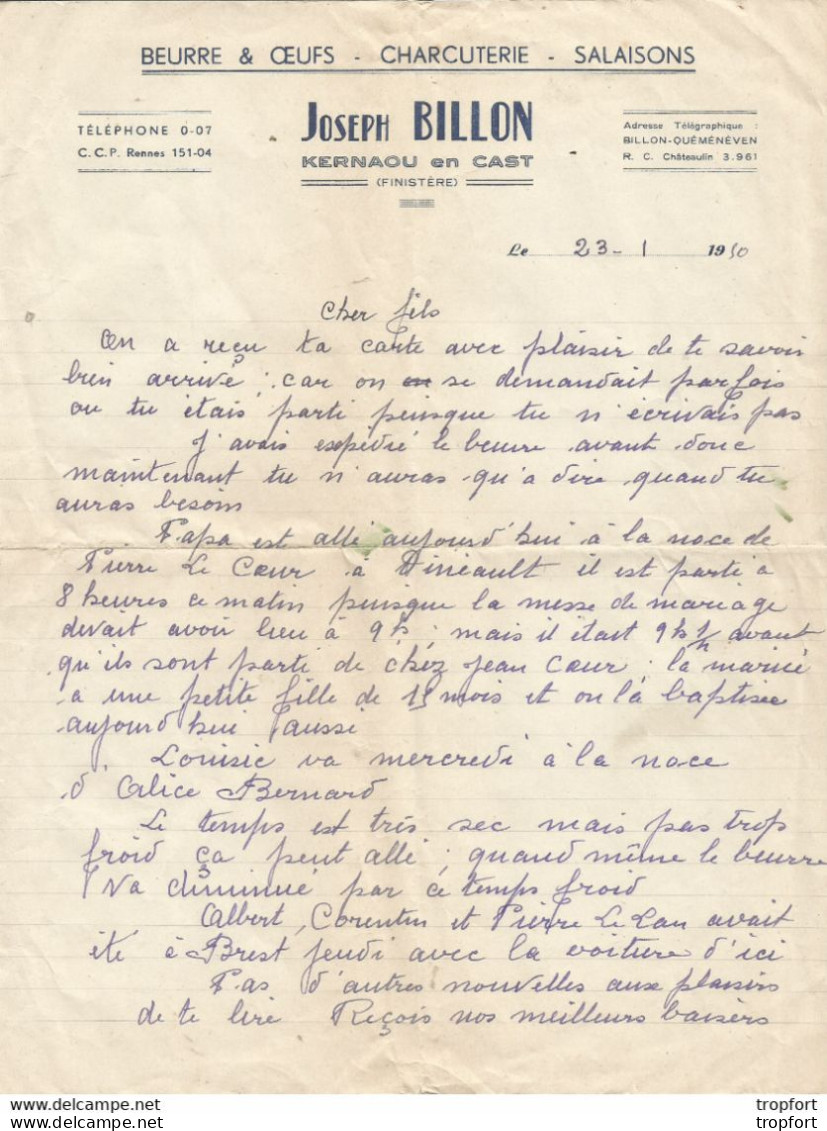 BEURRE & ŒUFS - CHARCUTERIE - SALAISONS
TÉLÉPHONE 0-07
C.C.P. Rennes 151-04
JOSEPH BILLON
KERNAOU en CAST
(FINISTÈRE)
Adresse Télégraphique :
BILLON-QUÉMÉNÉVEN
R. C. Châteaulin 3.961
Le 23-1 1950
Cher fils
On a reçu ta carte avec plaisir de te savoir
bien arrivé ; car on se demandait parfois
ou tu étais parti puisque tu n'écrivais pas
J'avais expédié le beurre avant donc
maintenant tu n'auras qu'a dire quand tu
auras besoin
Papa est allé aujourd'hui à la noce de
Pierre Le Cœur à Dinéault il est parti a
8 heures ce matin puisque la messe de mariage
devait avoir lieu à 9h ; mais il était 9h 1/2 avant
qu'ils sont parti de chez Jean Cœur ; la marié
a une petite fille de mois et on l'a baptisée
aujourd'hui aussi
Louisic va mercredi à la noce
d'Alice Bernard
Le temps est très sec mais pas trop
froid ça peut allé ; quand même le beurre
va diminué par ce temps froid
Albert, Corentin et Pierre Le Lan avait
été à Brest jeudi avec la voiture d'ici
Pas d'autres nouvelles aux plaisirs
de te lire Reçois nos meilleurs baisers
More on www.delcampe.net
More on www.delcampe.net
tropfort
tropfort